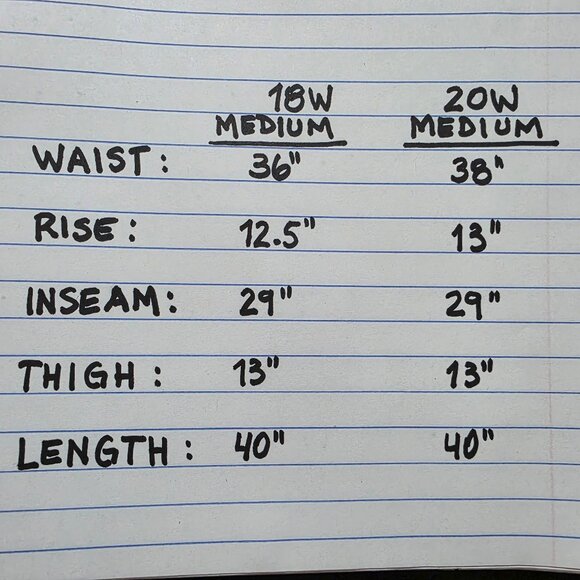 18W 20W
MEDIUM MEDIUM
WAIST: 36" 38"
RISE: 12.5" 13"
INSEAM: 29" 29"
THIGH: 13" 13"
LENGTH: 40" 40"